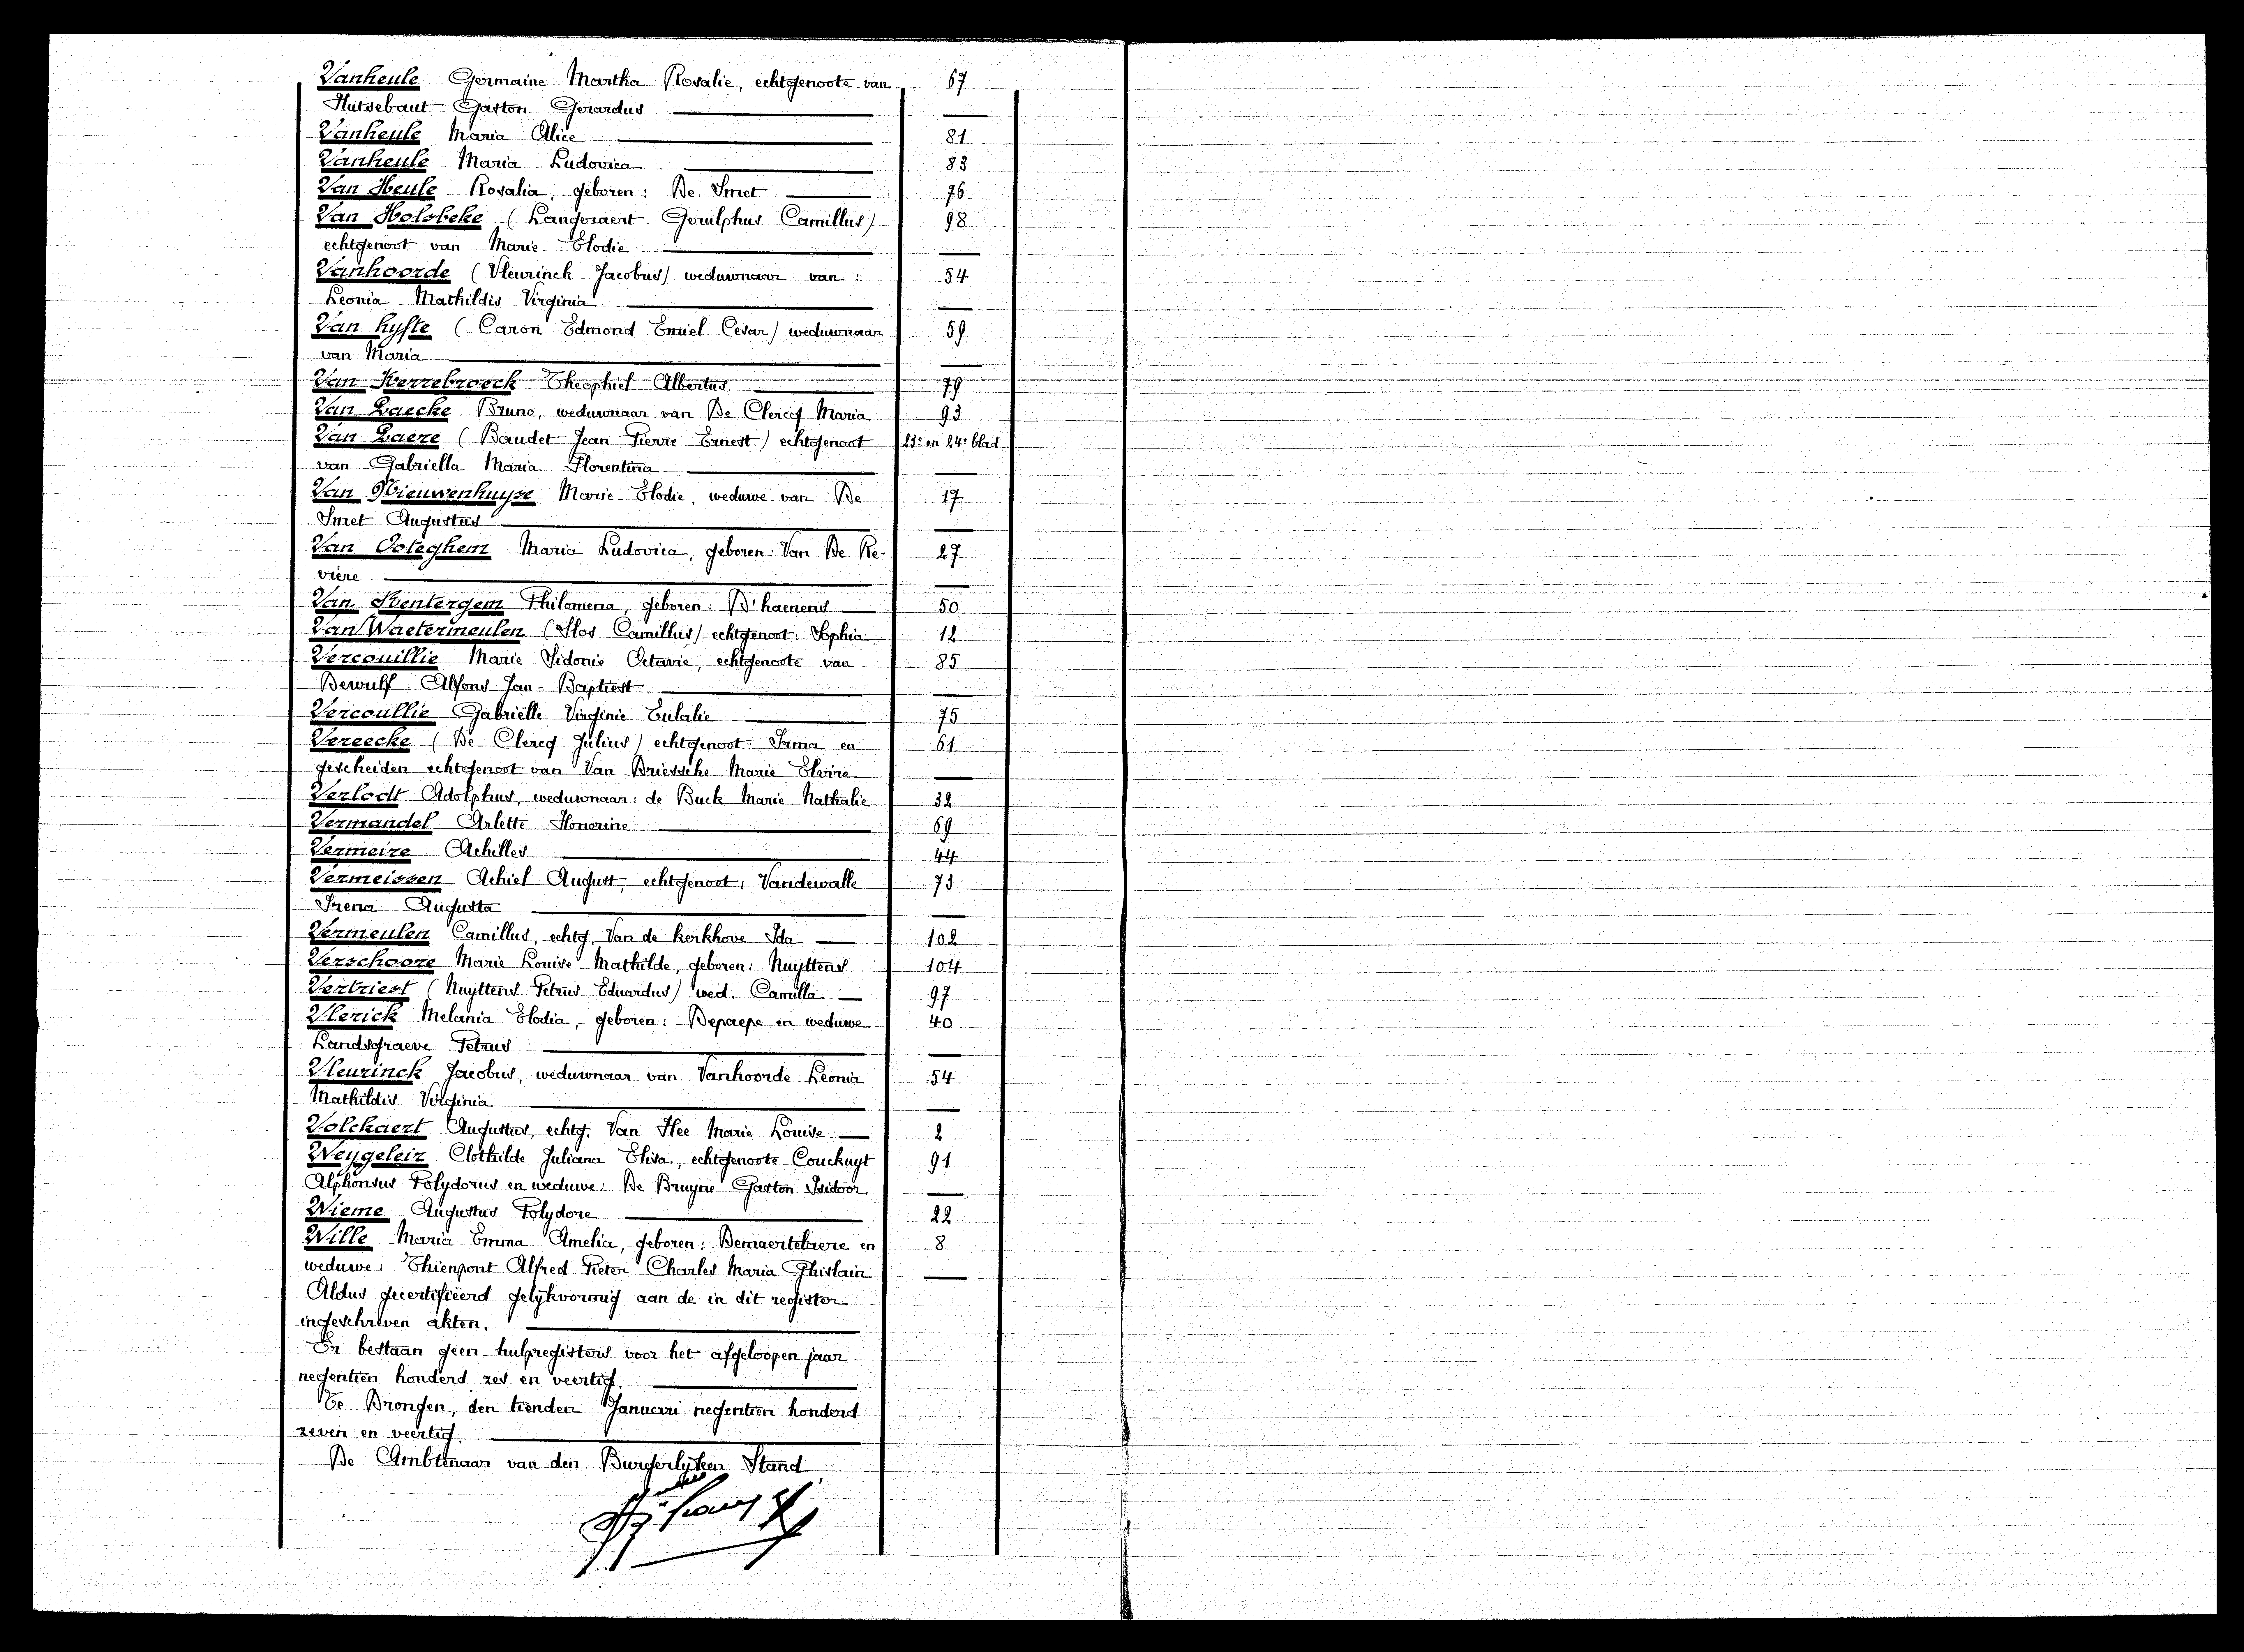 Vanheule Germaine Martha Rosalie, echtgenoote van 67
Hutsebaut Gaston Gerardus
Vanheule Maria Alice 81
Vanheule Maria Ludovica 83
Van Heule Rosalia, geboren: De Smet 76
Van Holsbeke (Langeraert Geraulphus Camillus) 98
echtgenoot van Marie Elodie
Vanhoorde (Vleurinck Jacobus) weduwnaar van: 54
Leonia Mathildis Virginia
Van hyfte (Caron Edmond Emiel Cesar) weduwnaar 59
van Maria
Van Kerrebroeck Theophiel Albertus 79
Van Laecke Bruno, weduwnaar van De Clercq Maria 93
Van Laere (Baudet Jean Pierre Ernest) echtgenoot 23e en 24e blad
van Gabriella Maria Florentina
Van Nieuwenhuyse Marie Elodie, weduwe van De 17
Smet Augustus
Van Ooteghem Maria Ludovica, geboren: Van De Re- 27
viere
Van Rentergem Philomena, geboren: D'haenens 50
Van Waetermeulen (Slos Camillus) echtgenoot: Sophia 12
Vercouillie Marie Sidonie Octavie, echtgenoote van 85
Dewulf Alfons Jan-Baptiest
Vercoullie Gabriëlle Virginie Eulalie 75
Vereecke (De Clercq Julius) echtgenoot: Irma en 61
gescheiden echtgenoot van Van Driessche Marie Elvire
Verlodt Adolphus, weduwnaar: de Buck Marie Nathalie 32
Vermandel Arlette Honorine 69
Vermeire Achilles 44
Vermeissen Achiel August, echtgenoot: Vandewalle 73
Irena Augusta
Vermeulen Camillus, echtg. Van de kerkhove Ida 102
Verschoore Marie Louise Mathilde, geboren: Nuyttens 104
Vertriest (Nuyttens Petrus Eduardus) wed. Camilla 97
Vlerick Melania Elodia, geboren: Depaepe en weduwe 40
Landsgraeve Petrus
Vleurinck Jacobus, weduwnaar van Vanhoorde Leonia 54
Mathildis Virginia
Volckaert Augustus, echtg. Van Hee Marie Louise 2
Weygeleir Clothilde Juliana Elisa, echtgenoote Couckuyt 91
Alphonsus Polydorus en weduwe: De Bruyne Gaston Isidoor
Wieme Augustus Polydore 22
Wille Maria Emma Amelia, geboren: Demaertelaere en 8
weduwe: Thienpont Alfred Pieter Charles Maria Ghislain
Aldus gecertifiëerd gelijkvormig aan de in dit register
ingeschreven akten.
Er bestaan geen hulpregisters voor het afgeloopen jaar
negentien honderd zes en veertig.
Te Drongen, den tienden Januari negentien honderd
zeven en veertig.
De Ambtenaar van den Burgerlijken Stand,